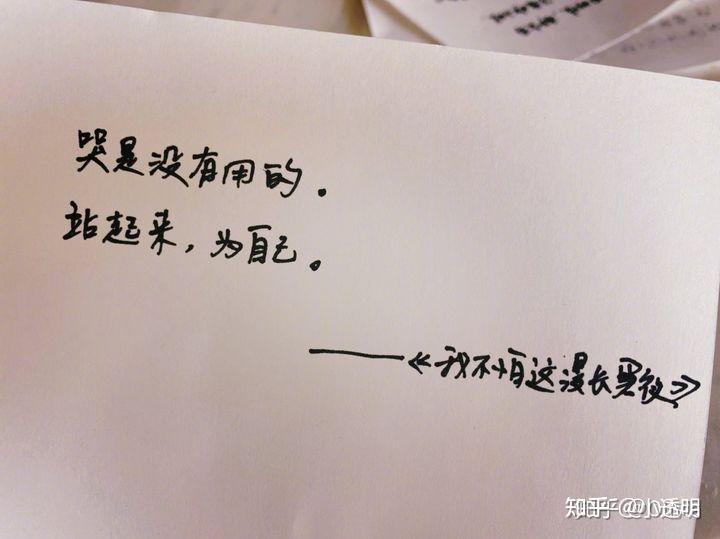 哭是没有用的.
站起来,为自己。
——《我不怕这漫长黑夜》
知乎 @小透明